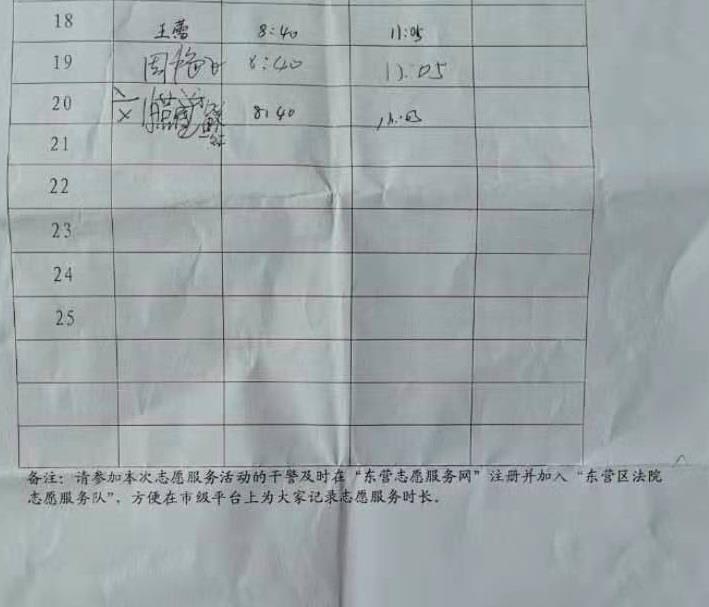 18 王蕾 8:40 11:05
19 周梅 8:40 11:05
20 8:40
21
22
23
24
25
备注：请参加本次志愿服务活动的干警及时在“东营志愿服务网”注册并加入“东营区法院
志愿服务队”，方便在市级平台上为大家记录志愿服务时长。